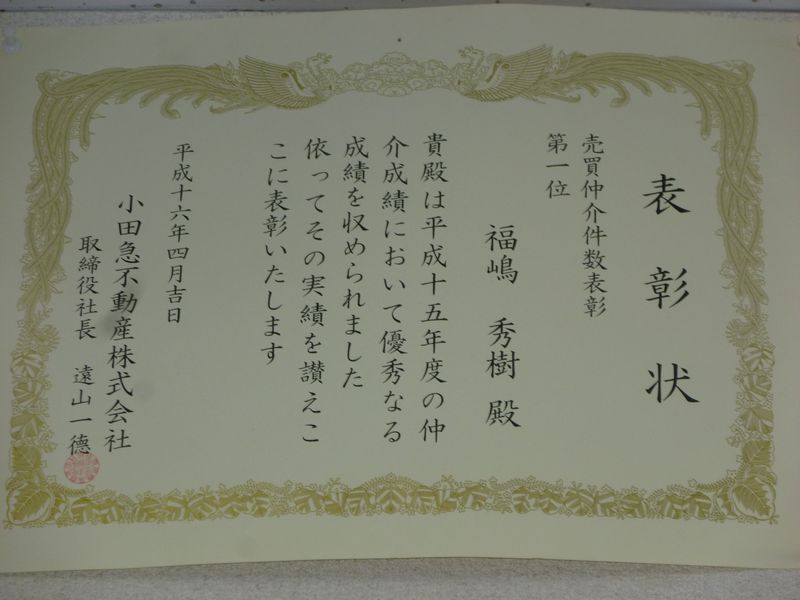 表彰状
売買仲介件数表彰
第一位
福嶋 秀樹 殿
貴殿は平成十五年度の仲
介成績において優秀なる
成績を収められました
依ってその実績を讃えこ
こに表彰いたします
平成十六年四月吉日
小田急不動産株式会社
取締役社長 遠山一德